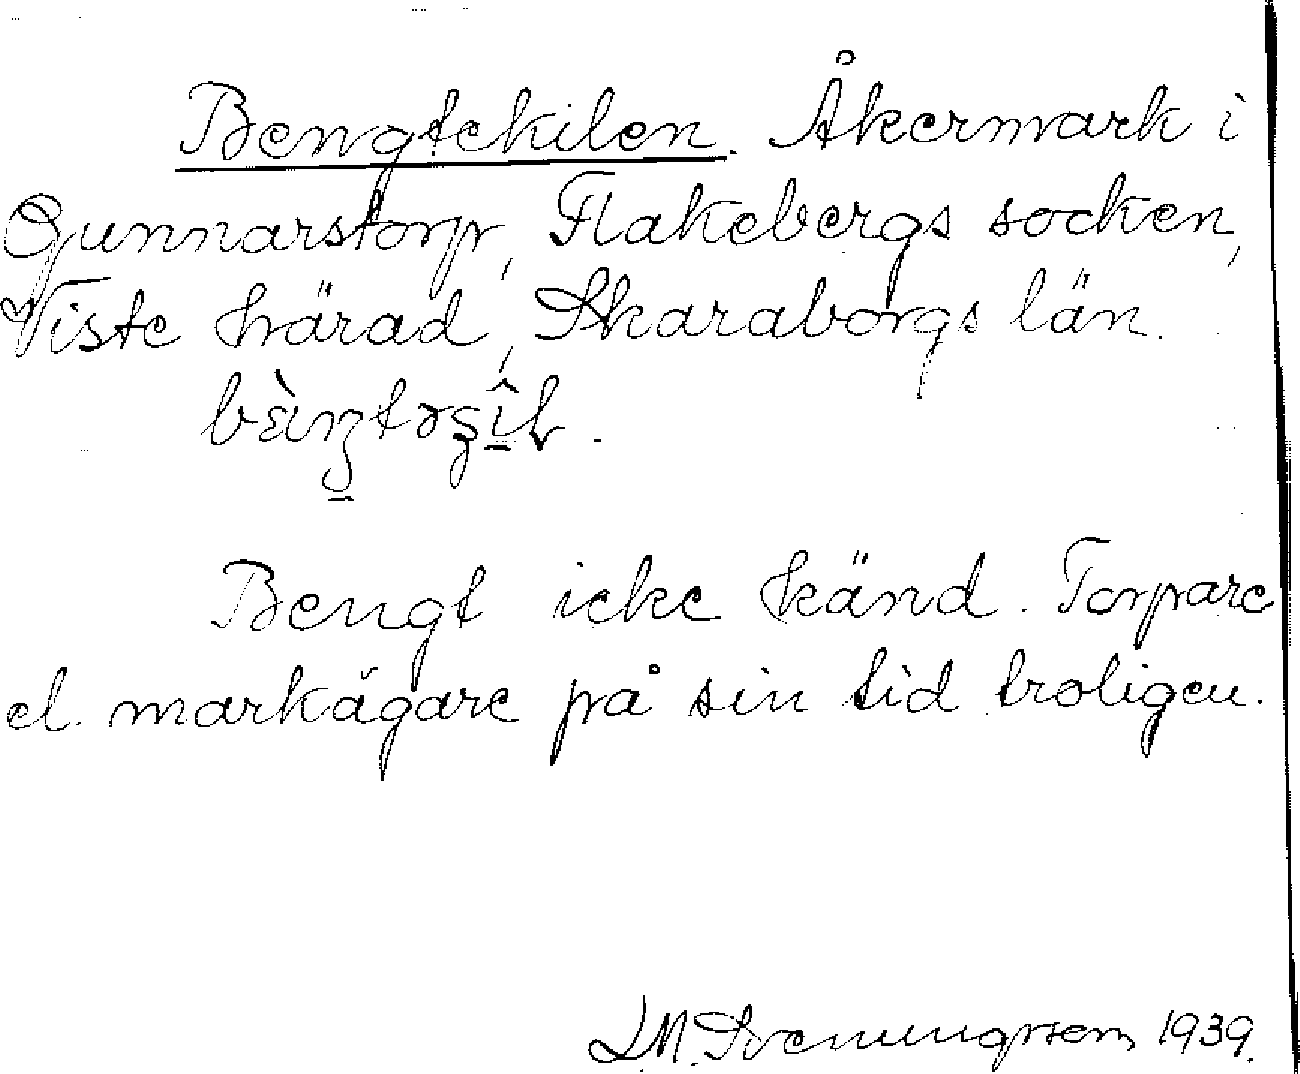 Bengtekilen. Åkermark i
Gunnarstorp, Flakebergs socken,
Viste härad, Skaraborgs län.
Bengt icke känd. Torpare
el. markägare på sin tid troligen.
L.M. Svenungsson 1939.